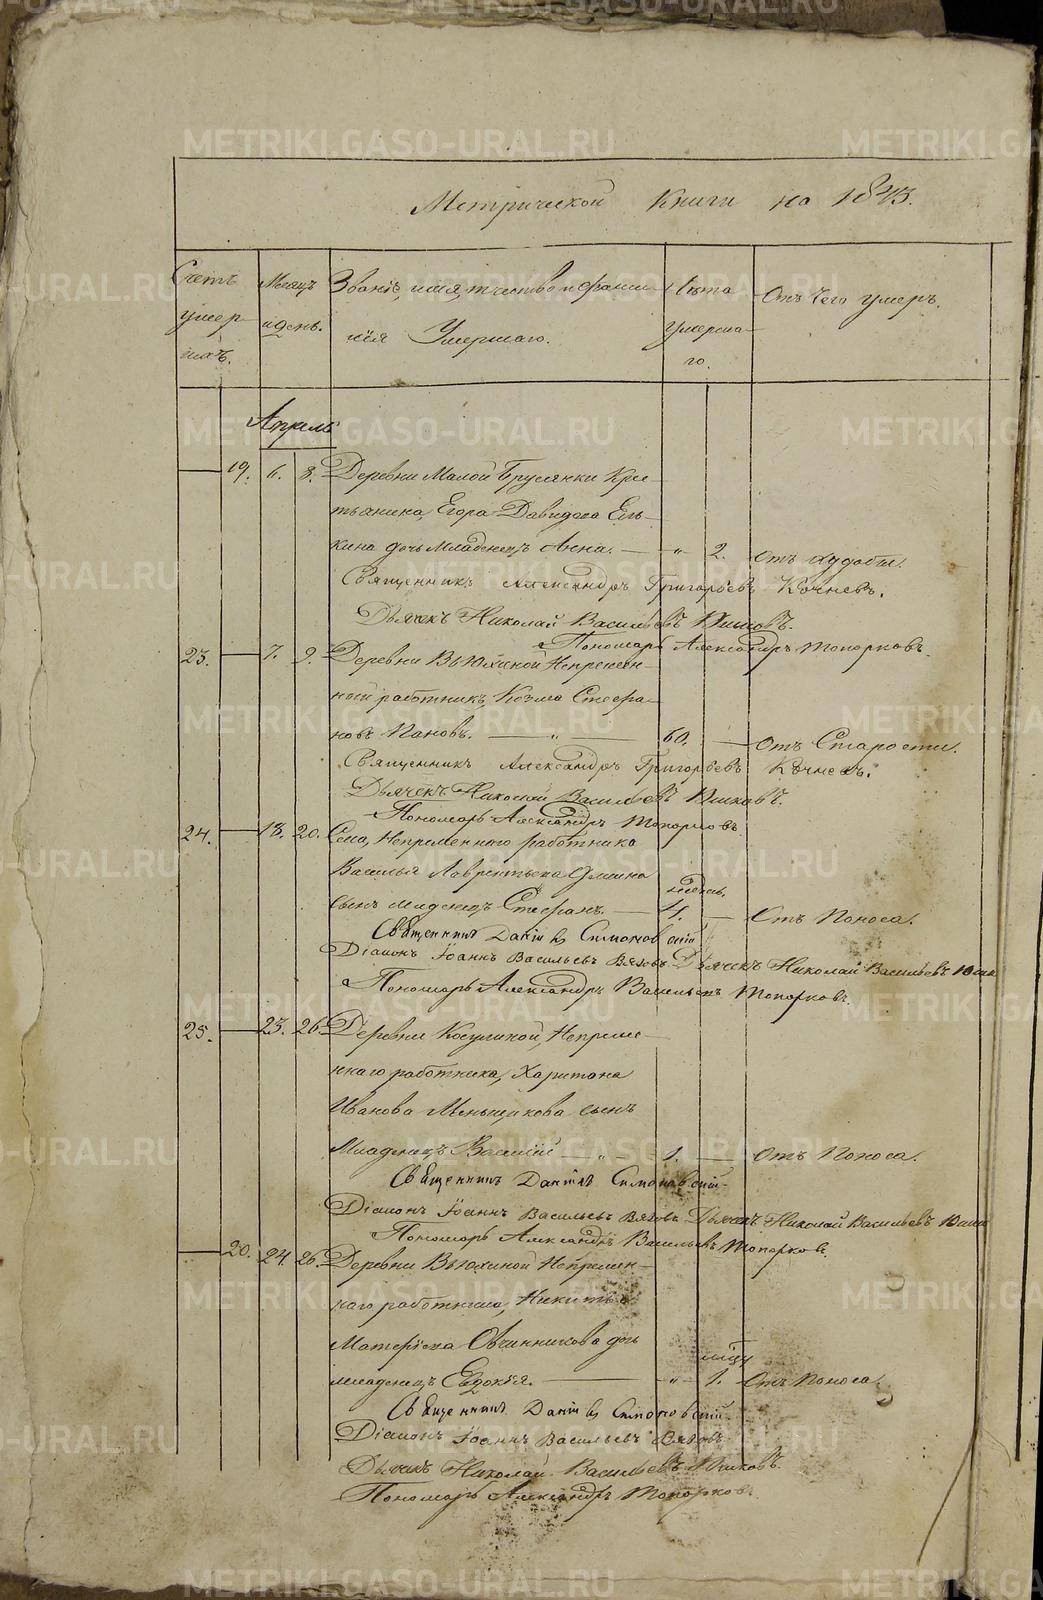 METRIKI.GASO-URAL.RU
Метрической Книги на 1843.
Счетъ умер шихъ.
Месяцъ и день.
Званіе, имя, отчество и фами лія Умершаго.
Лета умерша го.
Отъ чего умеръ.
Апрель
19. 6. 8. Деревни Малой Брусянки Кре
стьянина, Егора Давидова Ель
кина дочь младенецъ Анна. — „ 2. Отъ худобы.
Священникъ Александръ Григорьевъ Кочневъ.
Дьячекъ Николай Васильевъ
Пономарь Александръ Топорковъ.
23. 7. 9. Деревни Вьюхиной Непремен
ный работникъ, Козма Стефа
новъ Пановъ. — „ — 60. — Отъ Старости.
Священникъ Александръ Григорьевъ Кочневъ.
Дьячекъ Николай Васильевъ
Пономарь Александръ Топорковъ.
24. 18. 20. Села, Непременнаго работника
Василья Лаврентьева
сынъ младенецъ Стефанъ. — 4. — Отъ Поноса.
Священникъ Даніилъ Симоновскій
Діаконъ Іоаннъ Васильевъ Вяговъ. Дьячекъ Николай Васильевъ
Пономарь Александръ Васильевъ Топорковъ.
25. 23. 26. Деревни Косулиной, Непреме
ннаго работника, Харитона
Иванова Меньщикова сынъ
Младенецъ Василій — „ 1. — Отъ Поноса.
Священникъ Даніилъ Симоновскій
Діаконъ Іоаннъ Васильевъ Вяговъ. Дьячекъ Николай Васильевъ
Пономарь Александръ Васильевъ Топорковъ.
20. 24. 26. Деревни Вьюхиной Непремен
наго работника, Никиты
Матвѣева Овчинникова дочь
младенецъ Евдокія. — „ 1. Отъ Поноса.
Священникъ Даніилъ Симоновскій
Діаконъ Іоаннъ Васильевъ Вяговъ
Дьячекъ Николай Васильевъ
Пономарь Александръ Топорковъ.